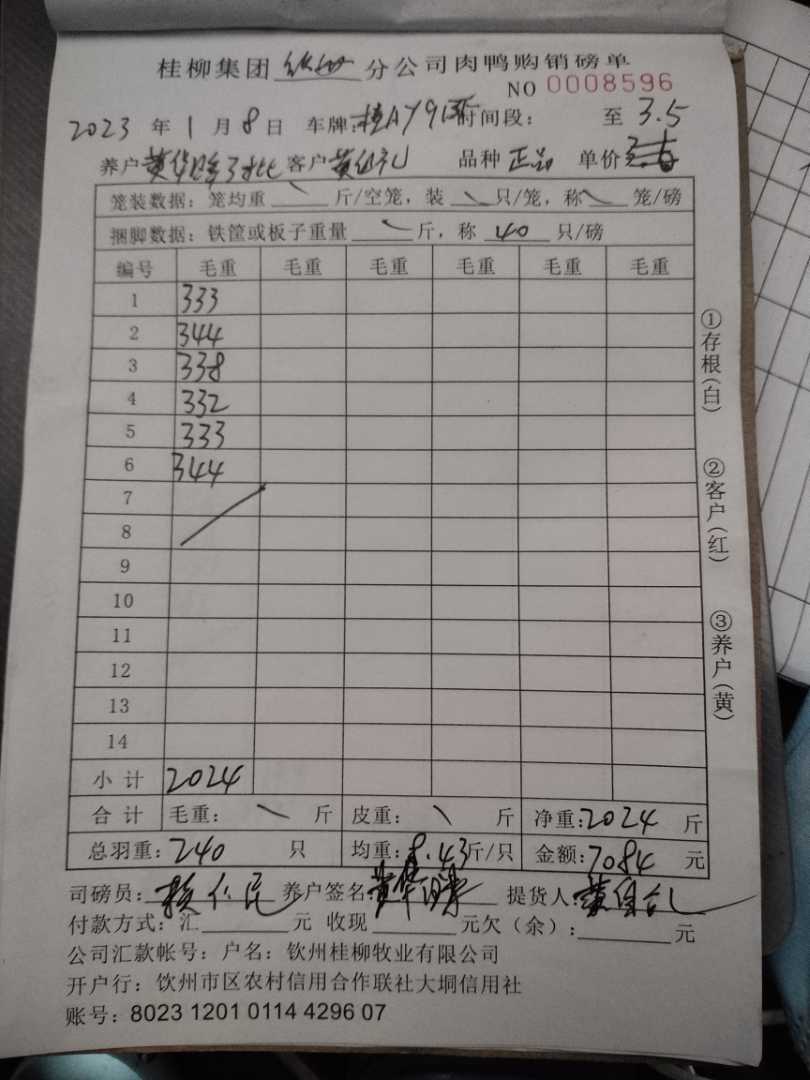 桂柳集团 钦州 分公司肉鸭购销磅单
NO 0008596
2023 年 1 月 8 日 车牌:桂AY9 时间段: 至 3.5
养户 黄华 客户 黄 礼 品种 正品 单价
笼装数据: 笼均重 \ 斤/空笼, 装 \ 只/笼, 称 \ 笼/磅
捆脚数据: 铁筐或板子重量 \ 斤, 称 40 只/磅
编号 毛重 毛重 毛重 毛重 毛重 毛重
1 333
2 344
3 338
4 332
5 333
6 344
7
8
9
10
11
12
13
14
小计 2024
合计 毛重: \ 斤 皮重: \ 斤 净重:2024 斤
总羽重: 240 只 均重:8.43斤/只 金额:7084 元
司磅员: 养户签名:黄华 提货人:黄
付款方式:汇 元 收现 元欠(余): 元
公司汇款帐号: 户名: 钦州桂柳牧业有限公司
开户行: 钦州市区农村信用合作联社大垌信用社
账号: 8023 1201 0114 4296 07
①存根(白)
②客户(红)
③养户(黄)